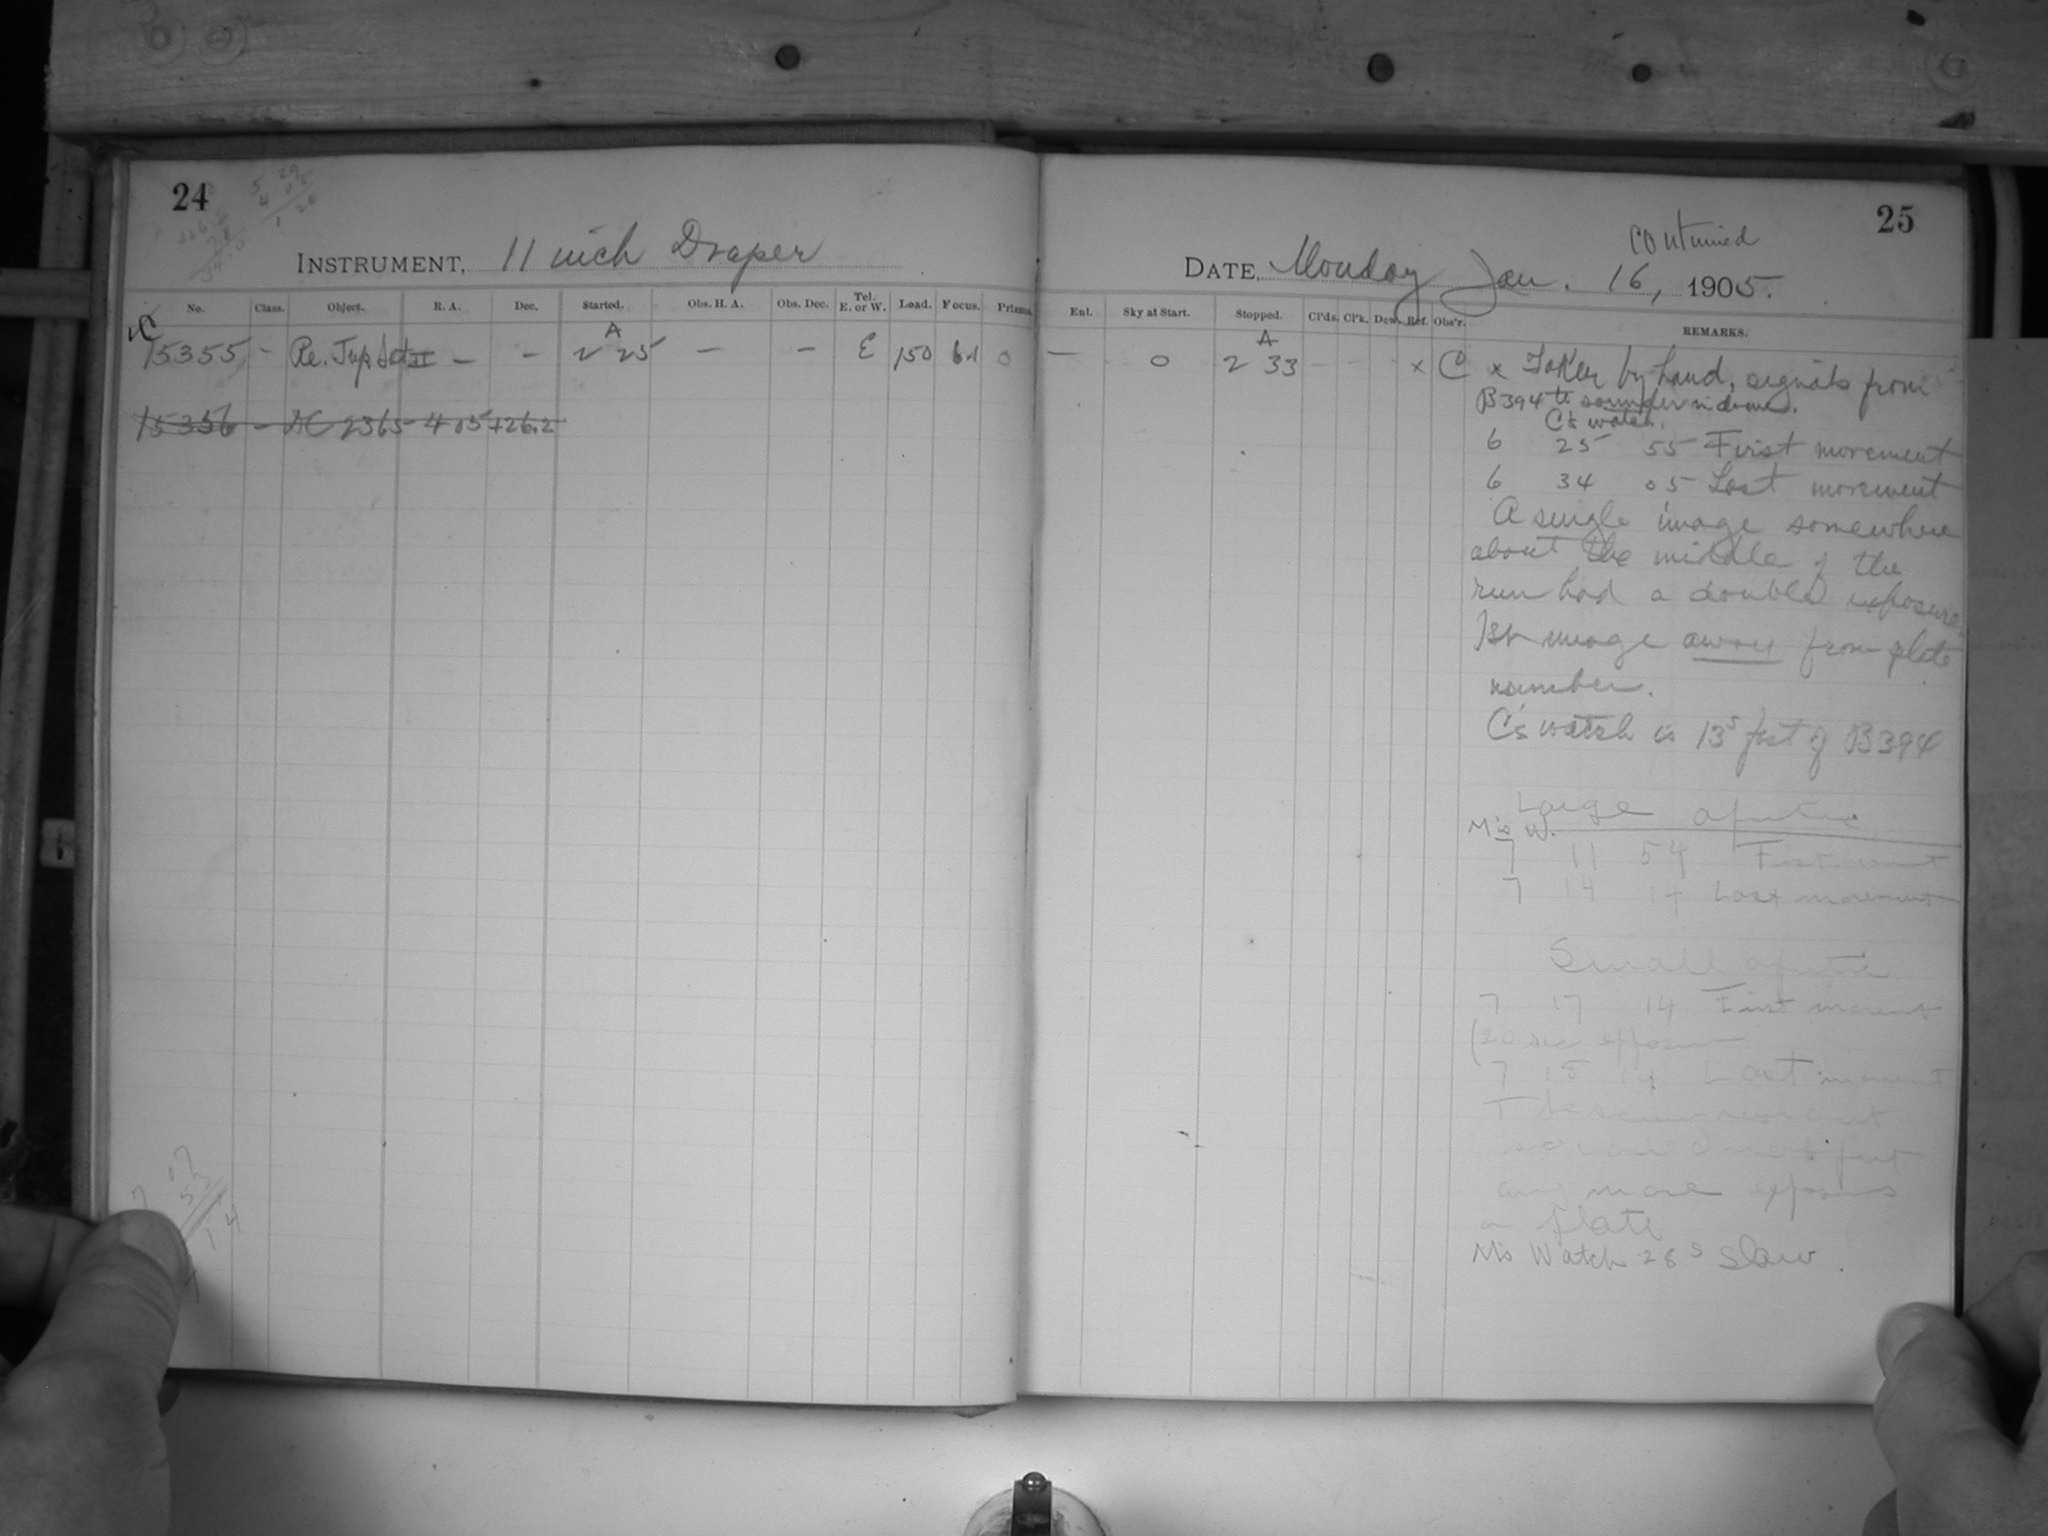 24
INSTRUMENT, 11 inch Draper
No. Class. Object. R. A. Dec. Started. Obs. H. A. Obs. Dec. Tel. E. or W. Load. Focus. Prisms.
C
A
15355 - Re. Jup. II - - 2 25 - - E 150 6.1 0
15356 - DC 2365 4 05 +26.2
07
53
14
25
continued
DATE, Monday Jan. 16, 1905.
Enl. Sky at Start. Stopped. Cl'ds. Cl'k. Dew. Ref. Obs'r. REMARKS.
A
— 0 2 33 - - - x C x Taken by hand, signals from
B394 to sounder in dome.
C's watch.
6 25 55 First movement
6 34 05 Last movement
A single image somewhere
about the middle of the
run had a double exposure.
1st image away from plate
number.
C's watch is 13s fast of B394
Large
M's W.
7 11 54 First
7 14 14 Last movement
Small
7 17 14 First
(20 sec
7 18 14 Last
any more
a plate
M's Watch 28s slow.